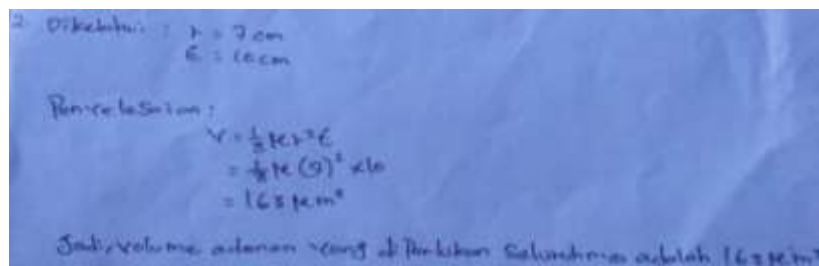 2. Diketahui : r = 7 cm
t = 10 cm
Penyelesaian :
V = 1/3 πr²t
= 1/3 π (7)² x10
= 163 πcm³
Jadi, volume adonan yang di Perlukan Seluruhnya adalah 163 πcm³